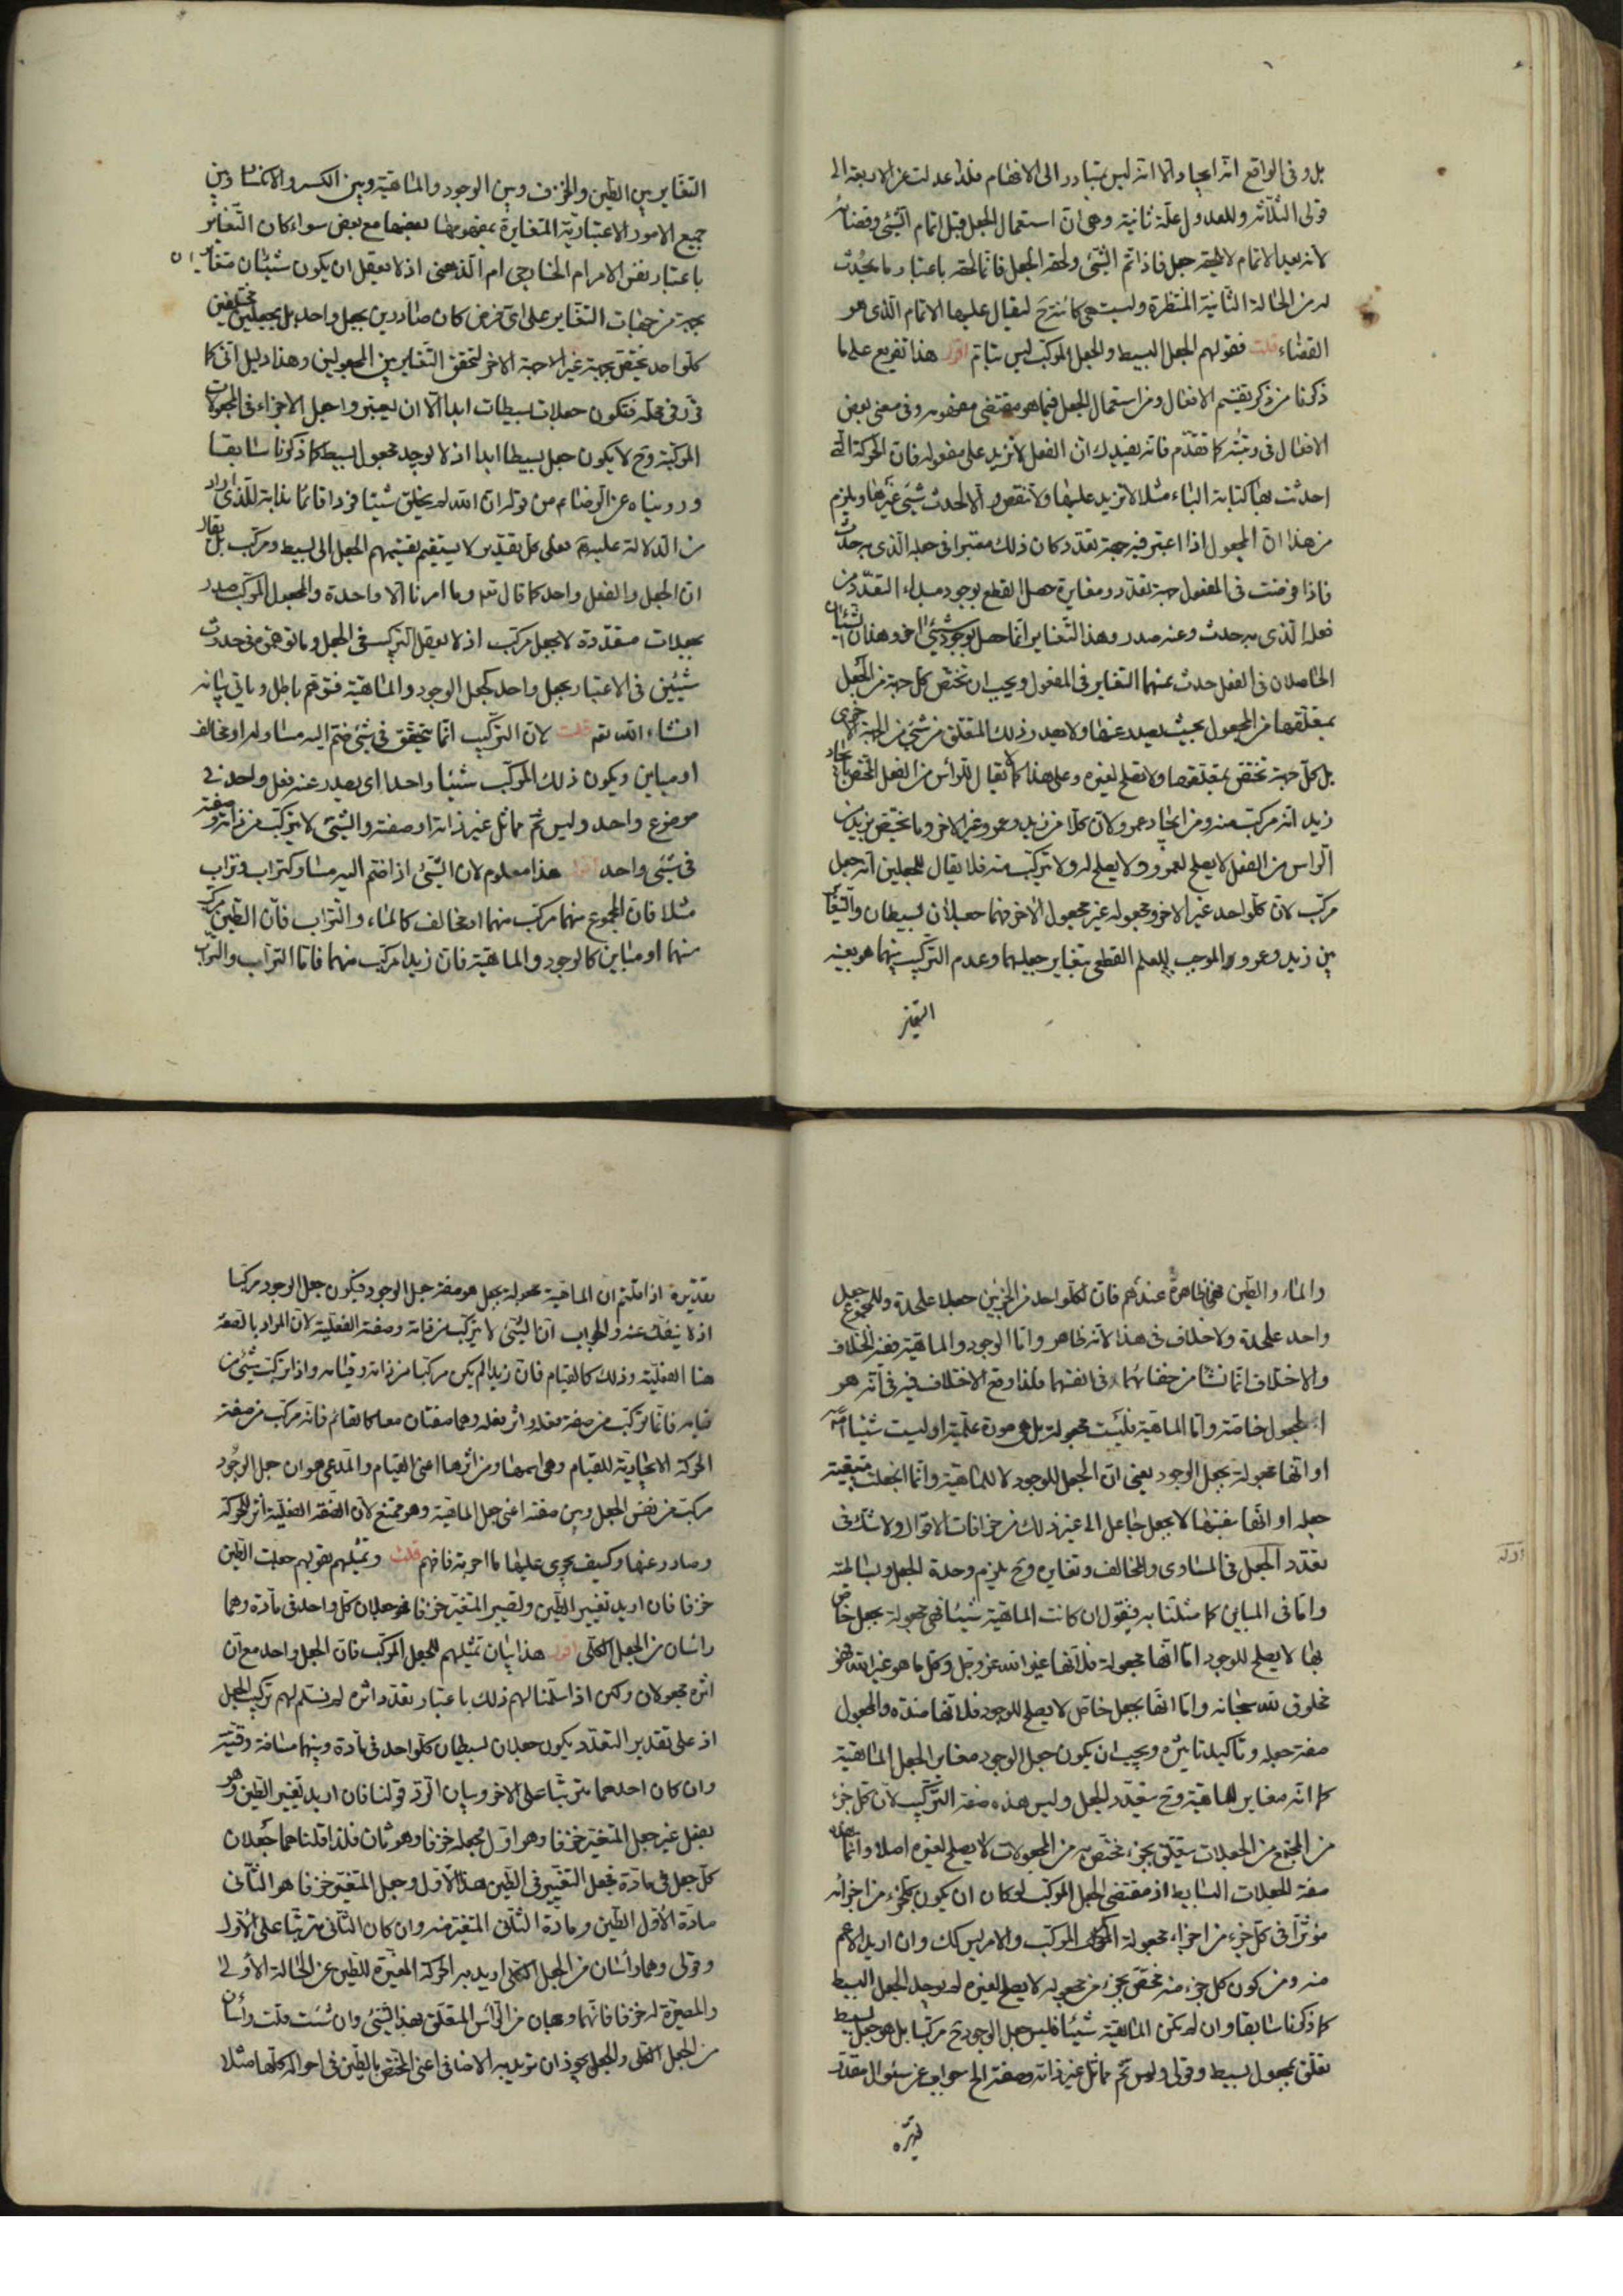 بل وفى الواقع انه ايجاد الا انه ليس يتبادر الى الافهام فلذا عدلت عن الاربعة الى
قولى الثلاثة وللعدول علة ثانية وهى ان استعمال الجعل قبل اتمام الشئ وقضائه
لانه بعد الاتمام لا يلحقه جعل فاذا تم الشئ ولحقه الجعل فانما لحقه باعتبار ما يحدث
له من الحالة الثانية المنتظرة وليست هى كائنة ح ليقال عليها الاتمام الذى هو
القضاء قلت فقولهم الجعل البسيط والجعل المركب ليس بتام اقول هذا تفريع على ما
ذكرنا من ذكر تقسيم الافعال ومن استعمال الجعل فيما هو مقتضى مفهومه وفى معنى بعض
الافعال فى رتبته كما تقدم فانه يفيدك ان الفعل لا يزيد على مفعوله فان الحركة التى
احدثت بها كتابة الباء مثلا لا تزيد عليها ولا تنقص والا لحدث شئ غيرها ويلزم
من هذا ان المجعول اذا اعتبر فيه جهة تعدد كان ذلك معتبرا فى جعله الذى به حدث
فاذا فرضت فى المفعول جهة تعدد ومغايرة حصل القطع بوجود مبدء التعدد من
فعله الذى به حدث وعنه صدر وهذا التغاير انما حصل بوجود شئ اخر وهذان الشيئان
الحاصلان فى الفعل حدث عنهما التغاير فى المفعول ويجب ان تختص كل جهة من الجعل
بمتعلقها من المجعول بحيث يصدر عنها ولا يصدر ذلك المتعلق من شئ من الجهة الاخرى
بل كل جهة تختص بمتعلقها ولا تصلح لغيره وعلى هذا كما لا يقال للرأس من الفعل المختص بايجاد
زيد انه مركب منه ومن ايجاد عمرو لان كلا من زيد وعمرو غير الاخر وما يختص بزيد من
الراس من الفعل لا يصلح لعمرو ولا يصلح له ولا تركب منه فلا يقال للجعلين انه جعل
مركب لان كلواحد غير الاخر ومجعوله غير مجعول الاخر فهما جعلان بسيطان والتغاير
بين زيد وعمرو الموجب للعلم القطعى بتغاير جعليهما وعدم التركيب بينهما هو بعينه
التغاير بين الطين والخزف وبين الوجود والماهية وبين الكسر والانكسار وبين
جميع الامور الاعتبارية المتغايرة بمفهومها بعضها مع بعض سواء كان التغاير
باعتبار نفس الامر ام الخارجى ام الذهنى اذ لا يعقل ان يكون شيئان متغايران
بجهة من جهات التغاير على اى فرض كان صادرين بجعل واحد بل بجعلين مختلفين
كلواحد يختص بجهة غير الاجهة الاخر لتحقق التغاير بين المجعولين وهذا دليل انى كما
قرر فى محله فتكون جعلات بسيطات ابدا الا ان يعتبر واجعل الاجزاء فى المجعولات
المركبة وح لا يكون جعل بسيطا ابدا اذ لا يوجد مجعول بسيط كما ذكرنا سابقا
وروينا عن الرضا ع من قوله ان الله لم يخلق شيئا فردا قائما بذاته للذى اراد
من الدلالة عليه فعلى كل تقدير لا يستقيم تقسيمهم الجعل الى بسيط ومركب بل يقال
ان الجعل والفعل واحد كما قال تع وما امرنا الا واحدة والمجعول المركب صدر
بجعلات متعددة لا بجعل مركب اذ لا يعقل التركيب فى الجعل وما توهم فى حدوث
شيئين فى الاعتبار بجعل واحد كجعل الوجود والماهية فتوهم باطل وياتى بيانه
انشاء الله تع قلت لان التركيب انما يتحقق فى شئ ضم اليه مساو له او مخالف
او مباين ويكون ذلك المركب شيئا واحدا اى يصدر عنه فعل واحد فى
موضوع واحد وليس ثم ماثل غير ذاته او صفته والشئ لا يتركب من ذاته وصفته
فى شئ واحد اقول هذا معلوم لان الشئ اذا ضم اليه مساو كتراب وتراب
مثلا فان المجموع منهما مركب منهما او مخالف كالماء والتراب فان الطين مركب
منهما او مباين كالوجود والماهية فان زيدا مركب منهما فاما التراب والتراب
والماء والطين فهى ظاهرة عندهم فان لكلواحد من الجزئين جعلا على حدة وللمجموع جعل
واحد على حدة ولا خلاف فى هذا لانه ظاهر واما الوجود والماهية ففيه الخلاف
والاختلاف انما نشأ من خفائهما فى انفسهما فلذا وقع الاختلاف فيه فى انه هو
المجعول خاصة واما الماهية فليست مجعولة بل هى صورة علمية او ليست شيئا
او انها مجعولة بجعل الوجود يعنى ان الجعل للوجود لا للماهية وانما انجعلت بتبعية
جعله او انها بنفسها لا بجعل جاعل الى غير ذلك من خرافات الاقوال ولا شك فى
تعدد الجعل فى المساوى والمخالف وتغايره وح يلزم وحدة الجعل وبساطته
واما فى المباين كما مثلنا به فنقول ان كانت الماهية شيئا فهى مجعولة بجعل خاص
بها لا يصلح للوجود اما انها مجعولة فلانها غير الله عز وجل وكل ما هو غير الله فهو
مخلوق لله سبحانه واما انها بجعل خاص لا يصلح للوجود فلانها ضده والمجعول
صفة جعله وتاكيد تاثيره ويجب ان يكون جعل الوجود مغاير لجعل الماهية
كما انه مغاير للماهية وح يتعدد الجعل وليس هذه صفة التركيب لان كل جزء
من المجتمع من الجعلات يتعلق بجزء مختص به من المجعولات لا يصلح لغيره اصلا وانما هذه
صفة للجعلات البسايط اذ مقتضى الجعل المركب لو كان ان يكون كل جزء من اجزائه
مؤثرا فى كل جزء من اجزاء مجعوله المركب والامر ليس كك وان اريد الاعم
منه ومن كون كل جزء منه مختص بجزء من مجعوله لا يصلح لغيره لم يوجد الجعل البسيط
كما ذكرنا سابقا وان لم تكن الماهية شيئا فليس جعل الوجود ح مركبا بل هو جعل بسيط
تعلق بمجعول بسيط وقولى وليس ثم ماثل غير ذاته وصفته الخ جواب عن سئوال مقدر
تقديره اذا قلتم ان الماهية مجعولة بجعل هو صفة جعل الوجود فيكون جعل الوجود مركبا
اذ لا ينفك عنه والجواب ان الشئ لا يتركب من ذاته وصفته الفعلية لان المراد بالصفة
هنا الفعلية وذلك كالقيام فان زيدا لم يكن مركبا من ذاته وقيامه واذا تركب شئ من
قيامه فانما تركب من صفة فعله واثر فعله وهما صفتان معا كالقائم فانه مركب من صفة
الحركة الايجادية للقيام وهى اسمها ومن اثرها اعنى القيام والمدعى هو ان جعل الوجود
مركب من نفس الجعل وبين صفته اعنى جعل الماهية وهو ممتنع لان الصفة الفعلية اثر للحركة
وصادر عنها وكيف يجرى عليها ما اجرته فافهم قلت وتمثيلهم بقولهم جعلت الطين
خزفا فان اريد تغيير الطين وتصيير المتغير خزفا فهو جعلان كل واحد فى مادة وهما
راسان من الجعل الكلى اقول هذا بيان تمثيلهم للجعل المركب فان الجعل واحد مع ان
اثره مجعولان ولكن اذا سلمنا لهم ذلك باعتبار تعدد اثره لم نسلم لهم تركيب الجعل
اذ على تقدير التعدد يكون جعلان بسيطان كلواحد فى مادة وبينهما مسافة وقتية
وان كان احدهما مترتبا على الاخر وبيان الرد قولنا فان اريد تغيير الطين وهو
بفعل غير جعل المتغير خزفا وهو اول بجعله خزفا وهو ثان فلذا قلنا هما جعلان
كل جعل فى مادة فجعل التغيير فى الطين هذا الاول وجعل المتغير خزفا هو الثانى
مادة الاول الطين ومادة الثانى المتغير منه وان كان الثانى مترتبا على الاول
وقولى وهما راسان من الجعل الكلى اريد به الحركة المغيرة للطين عن الحالة الاولى
والمصيرة له خزفا فانهما وجهان من الرأس المتعلق بهذا الشئ وان شئت قلت رأسان
من الجعل الكلى والجعل يجوز ان تريد به الاضافى اعنى المختص بالطين فى احواله كلها مثلا